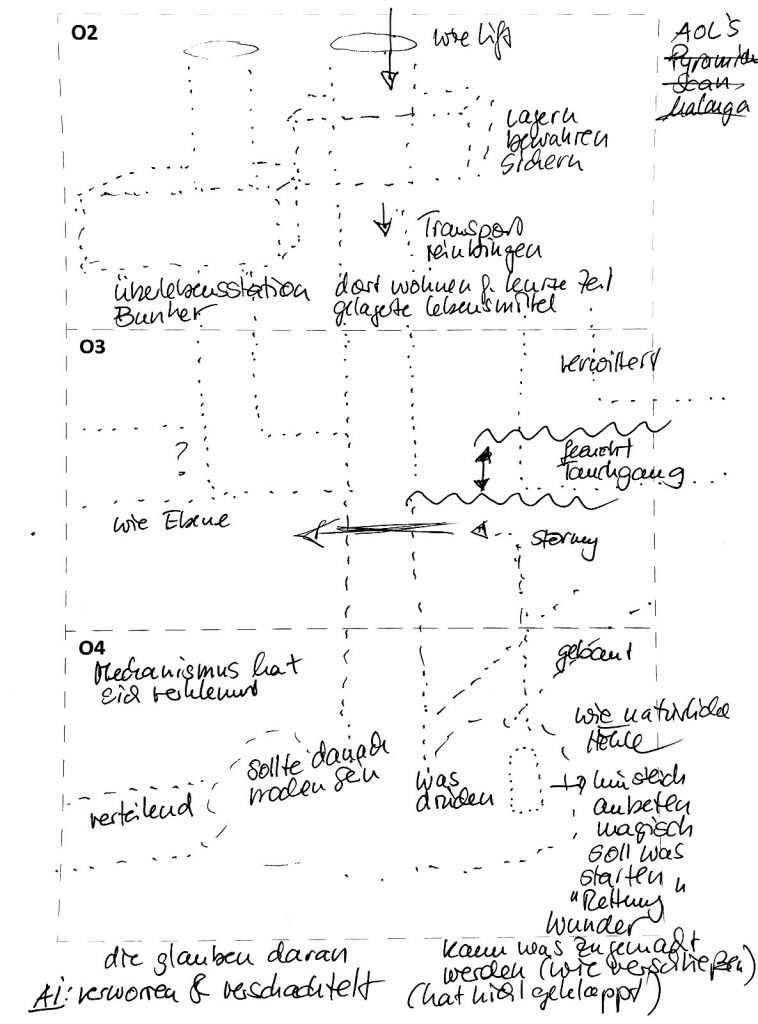 O2
wie Lift
AOL's
Pyramide
Scan
Malanga
Lagern
bewahren
sichern
Transport
reinbringen
Überlebensstation
Bunker
dort wohnen f. kurze Zeit
gelagerte Lebensmittel
O3
verwittert
?
feucht
Tauchgang
wie Ebene
O4
Mechanismus hat
sich verklemmt
gebaut
wie natürliche
Höhle
sollte danach
was
drücken
verteilend
anbeten
magisch
soll was
starten
"Rettung"
Wunder
die glauben daran
AI: verworren & verschachtelt
kann was zugemacht
werden (wie verschließen)
(hat nicht geklappt)